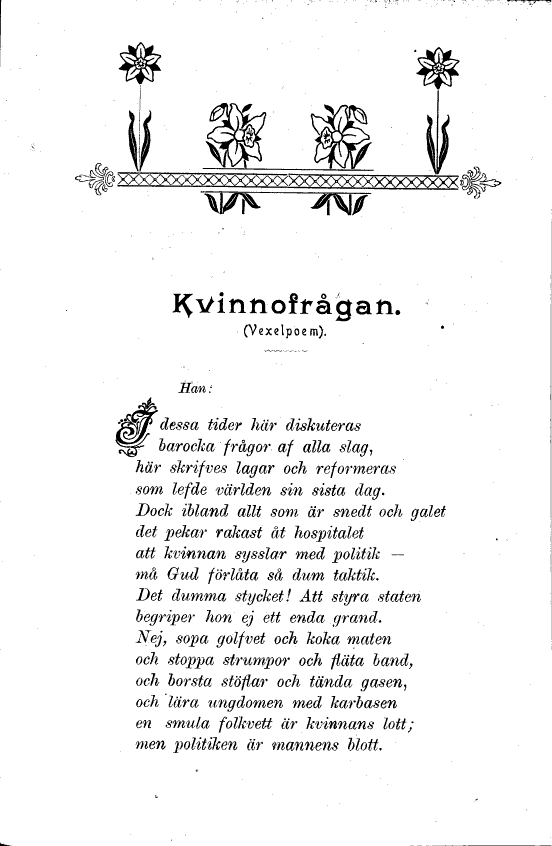 Kvinnofrågan.
(Vexelpoem).
Han:
I dessa tider här diskuteras
barocka frågor af alla slag,
här skrifves lagar och reformeras
som lefde världen sin sista dag.
Dock ibland allt som är snedt och galet
det pekar rakast åt hospitalet
att kvinnan sysslar med politik —
må Gud förlåta så dum taktik.
Det dumma stycket! Att styra staten
begriper hon ej ett enda grand.
Nej, sopa golfvet och koka maten
och stoppa strumpor och fläta band,
och borsta stöflar och tända gasen,
och lära ungdomen med karbasen
en smula folkvett är kvinnans lott;
men politiken är mannens blott.